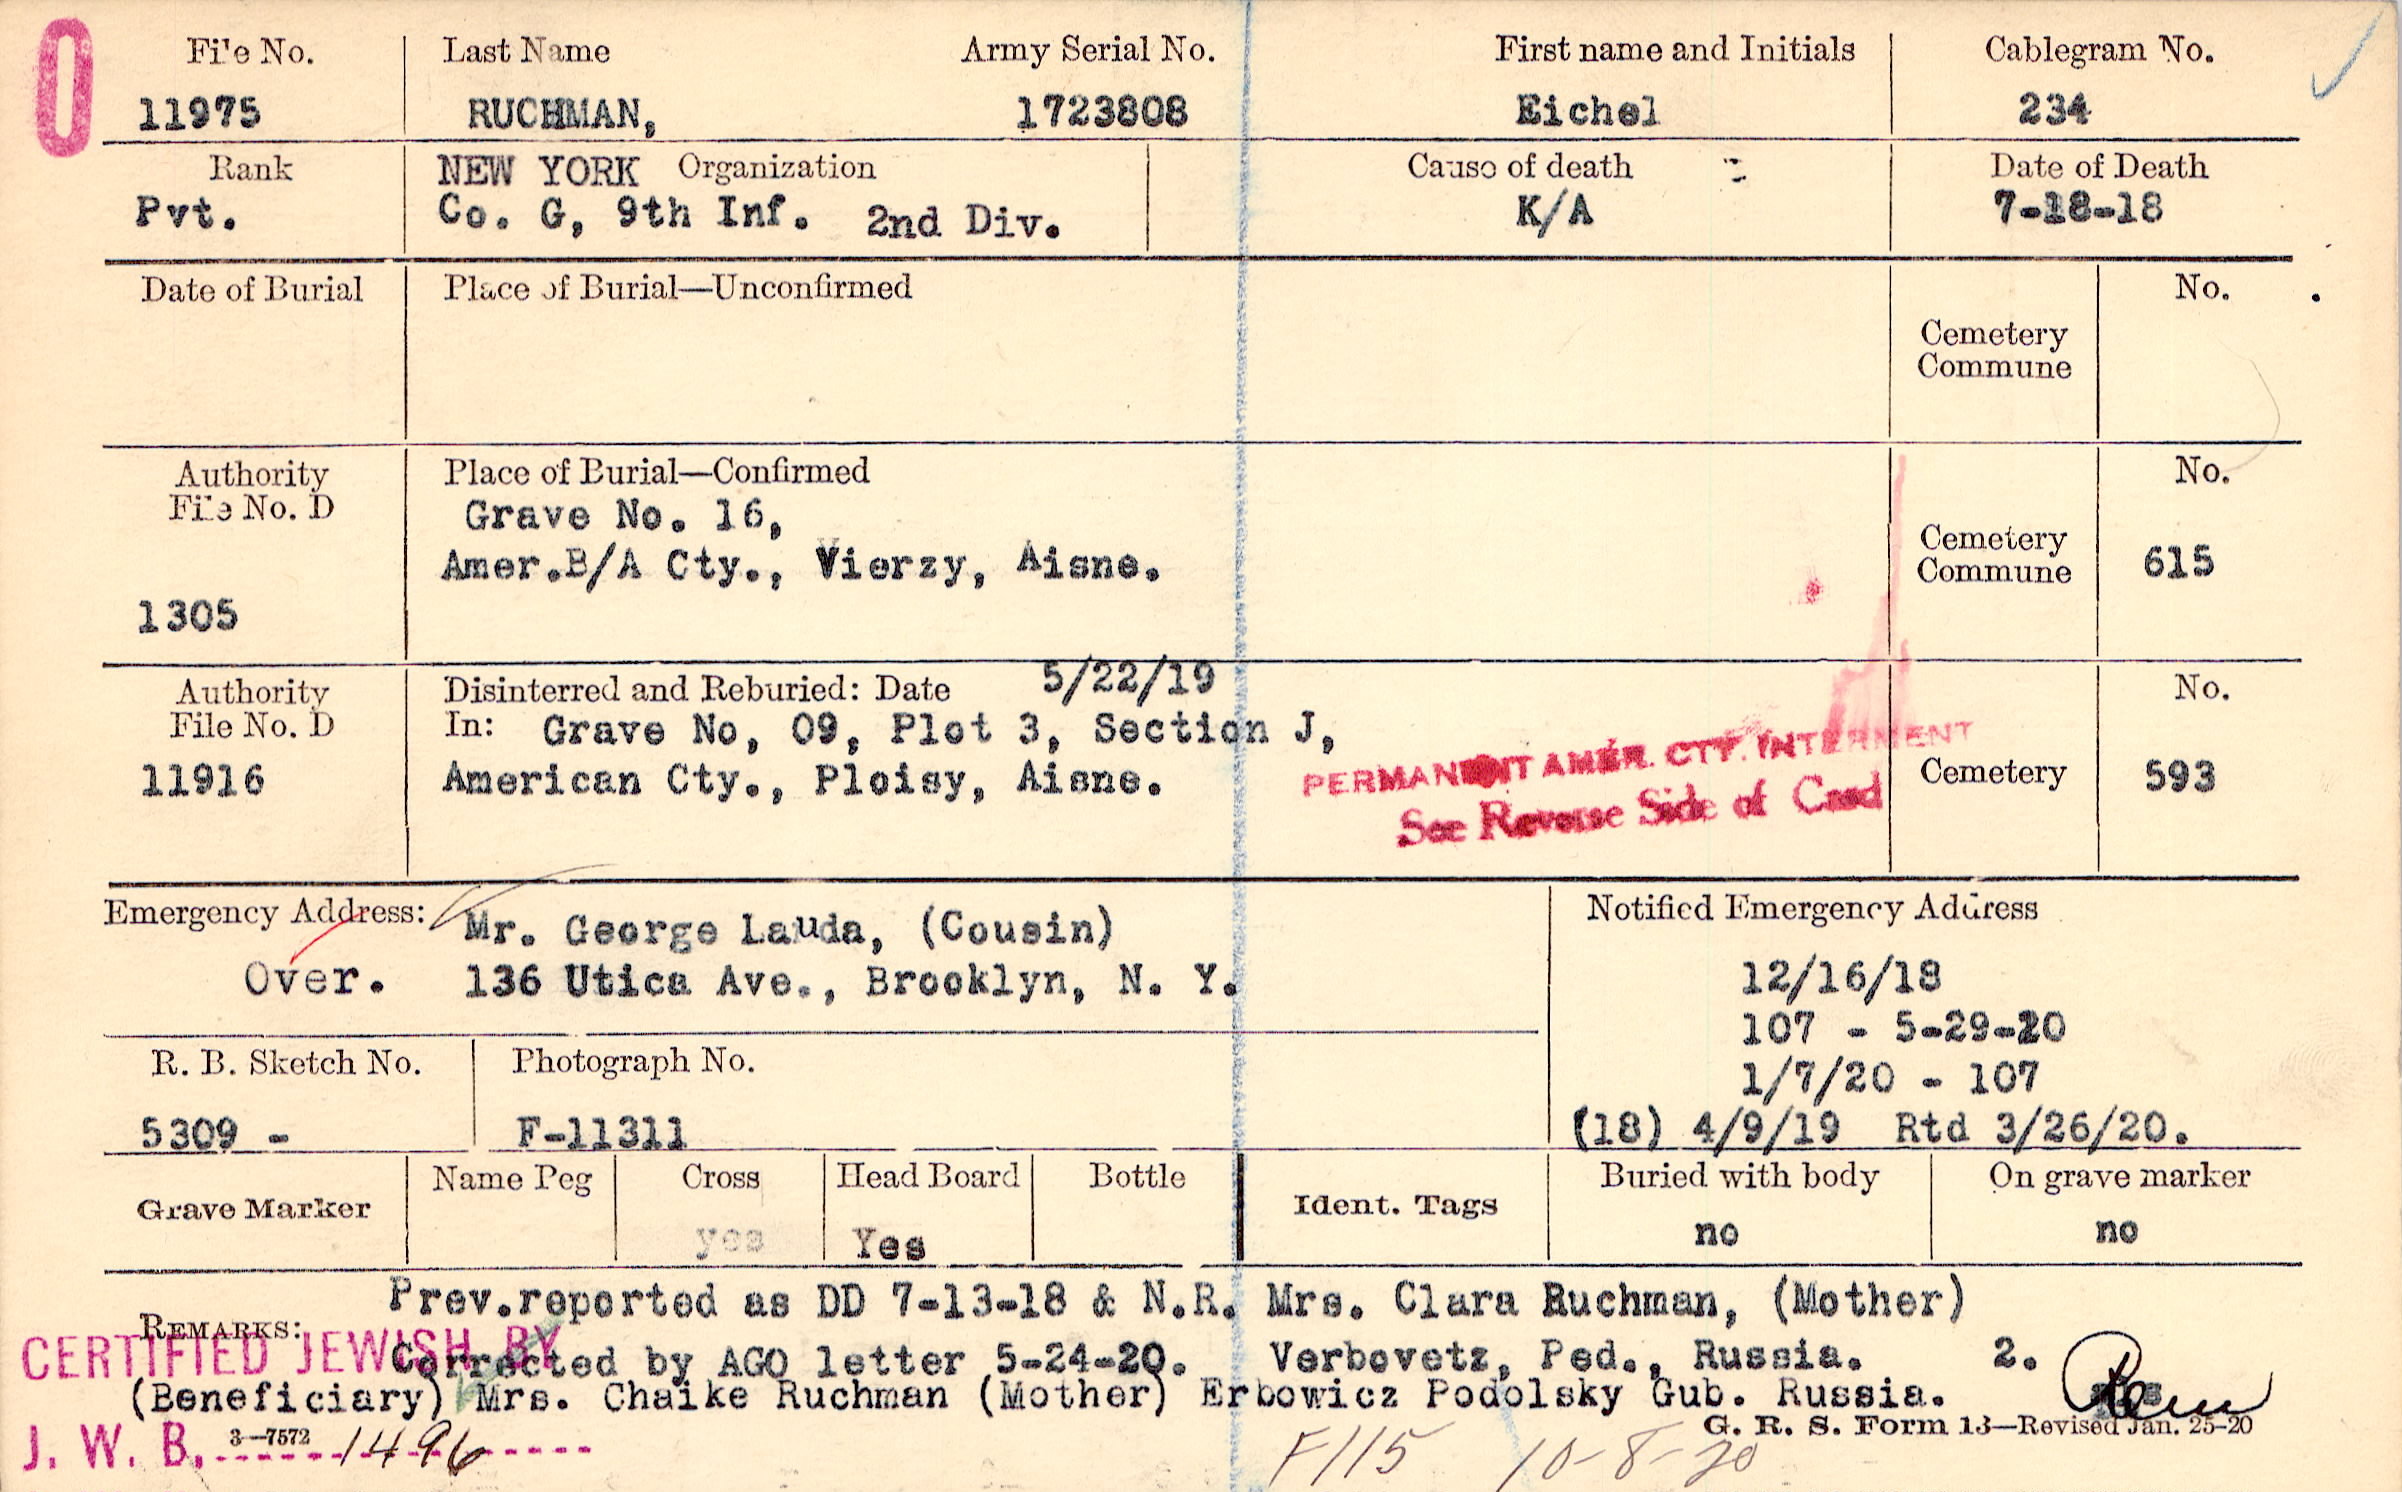 0
File No. Last Name Army Serial No. First name and Initials Cablegram No.
11975 RUCHMAN, 1723808 Eichel 234
Rank NEW YORK Organization Cause of death Date of Death
Pvt. Co. G, 9th Inf. 2nd Div. K/A 7-18-18
Date of Burial Place of Burial—Unconfirmed No.
Cemetery
Commune
Authority Place of Burial—Confirmed No.
File No. D Grave No. 16,
Amer.B/A Cty., Vierzy, Aisne. Cemetery
Commune 615
1305
Authority Disinterred and Reburied: Date 5/22/19 No.
File No. D In: Grave No, 09, Plot 3, Section J,
11916 American Cty., Ploisy, Aisne. Cemetery 593
PERMANENT AMER. CTY. INTERMENT
See Reverse Side of Card
Emergency Address: Mr. George Lauda, (Cousin) Notified Emergency Address
Over. 136 Utica Ave., Brooklyn, N. Y. 12/16/18
107 - 5-29-20
R. B. Sketch No. Photograph No. 1/7/20 - 107
5309 - F-11311 (18) 4/9/19 Rtd 3/26/20.
Grave Marker Name Peg Cross Head Board Bottle Ident. Tags Buried with body On grave marker
yes Yes no no
Prev.reported as DD 7-13-18 & N.R. Mrs. Clara Ruchman, (Mother)
REMARKS:
CERTIFIED JEWISH BY
Corrected by AGO letter 5-24-20. Verbovetz, Ped., Russia. 2.
(Beneficiary) Mrs. Chaike Ruchman (Mother) Erbowicz Podolsky Gub. Russia.
J. W. B. 1496
3—7572
G. R. S. Form 13—Revised Jan. 25-20
F115 10-8-20